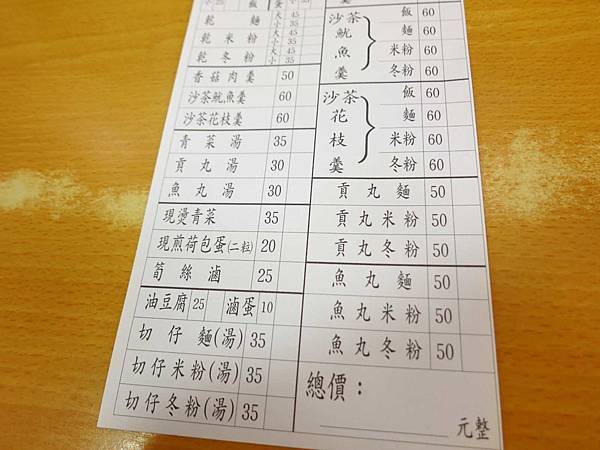 小 25 飯 蛋 35
乾 麵 大 45 小 35
乾 米 粉 大 45 小 35
乾 冬 粉 大 45 小 35
香菇肉羹 50
沙茶魷魚羹 60
沙茶花枝羹 60
青菜湯 35
貢丸湯 30
魚丸湯 30
現燙青菜 35
現煎荷包蛋(二粒) 20
筍絲滷 25
油豆腐 25 滷蛋 10
切仔麵(湯) 35
切仔米粉(湯) 35
切仔冬粉(湯) 35
沙茶魷魚羹
飯 60
麵 60
米粉 60
冬粉 60
沙茶花枝羹
飯 60
麵 60
米粉 60
冬粉 60
貢丸麵 50
貢丸米粉 50
貢丸冬粉 50
魚丸麵 50
魚丸米粉 50
魚丸冬粉 50
總價：
元整